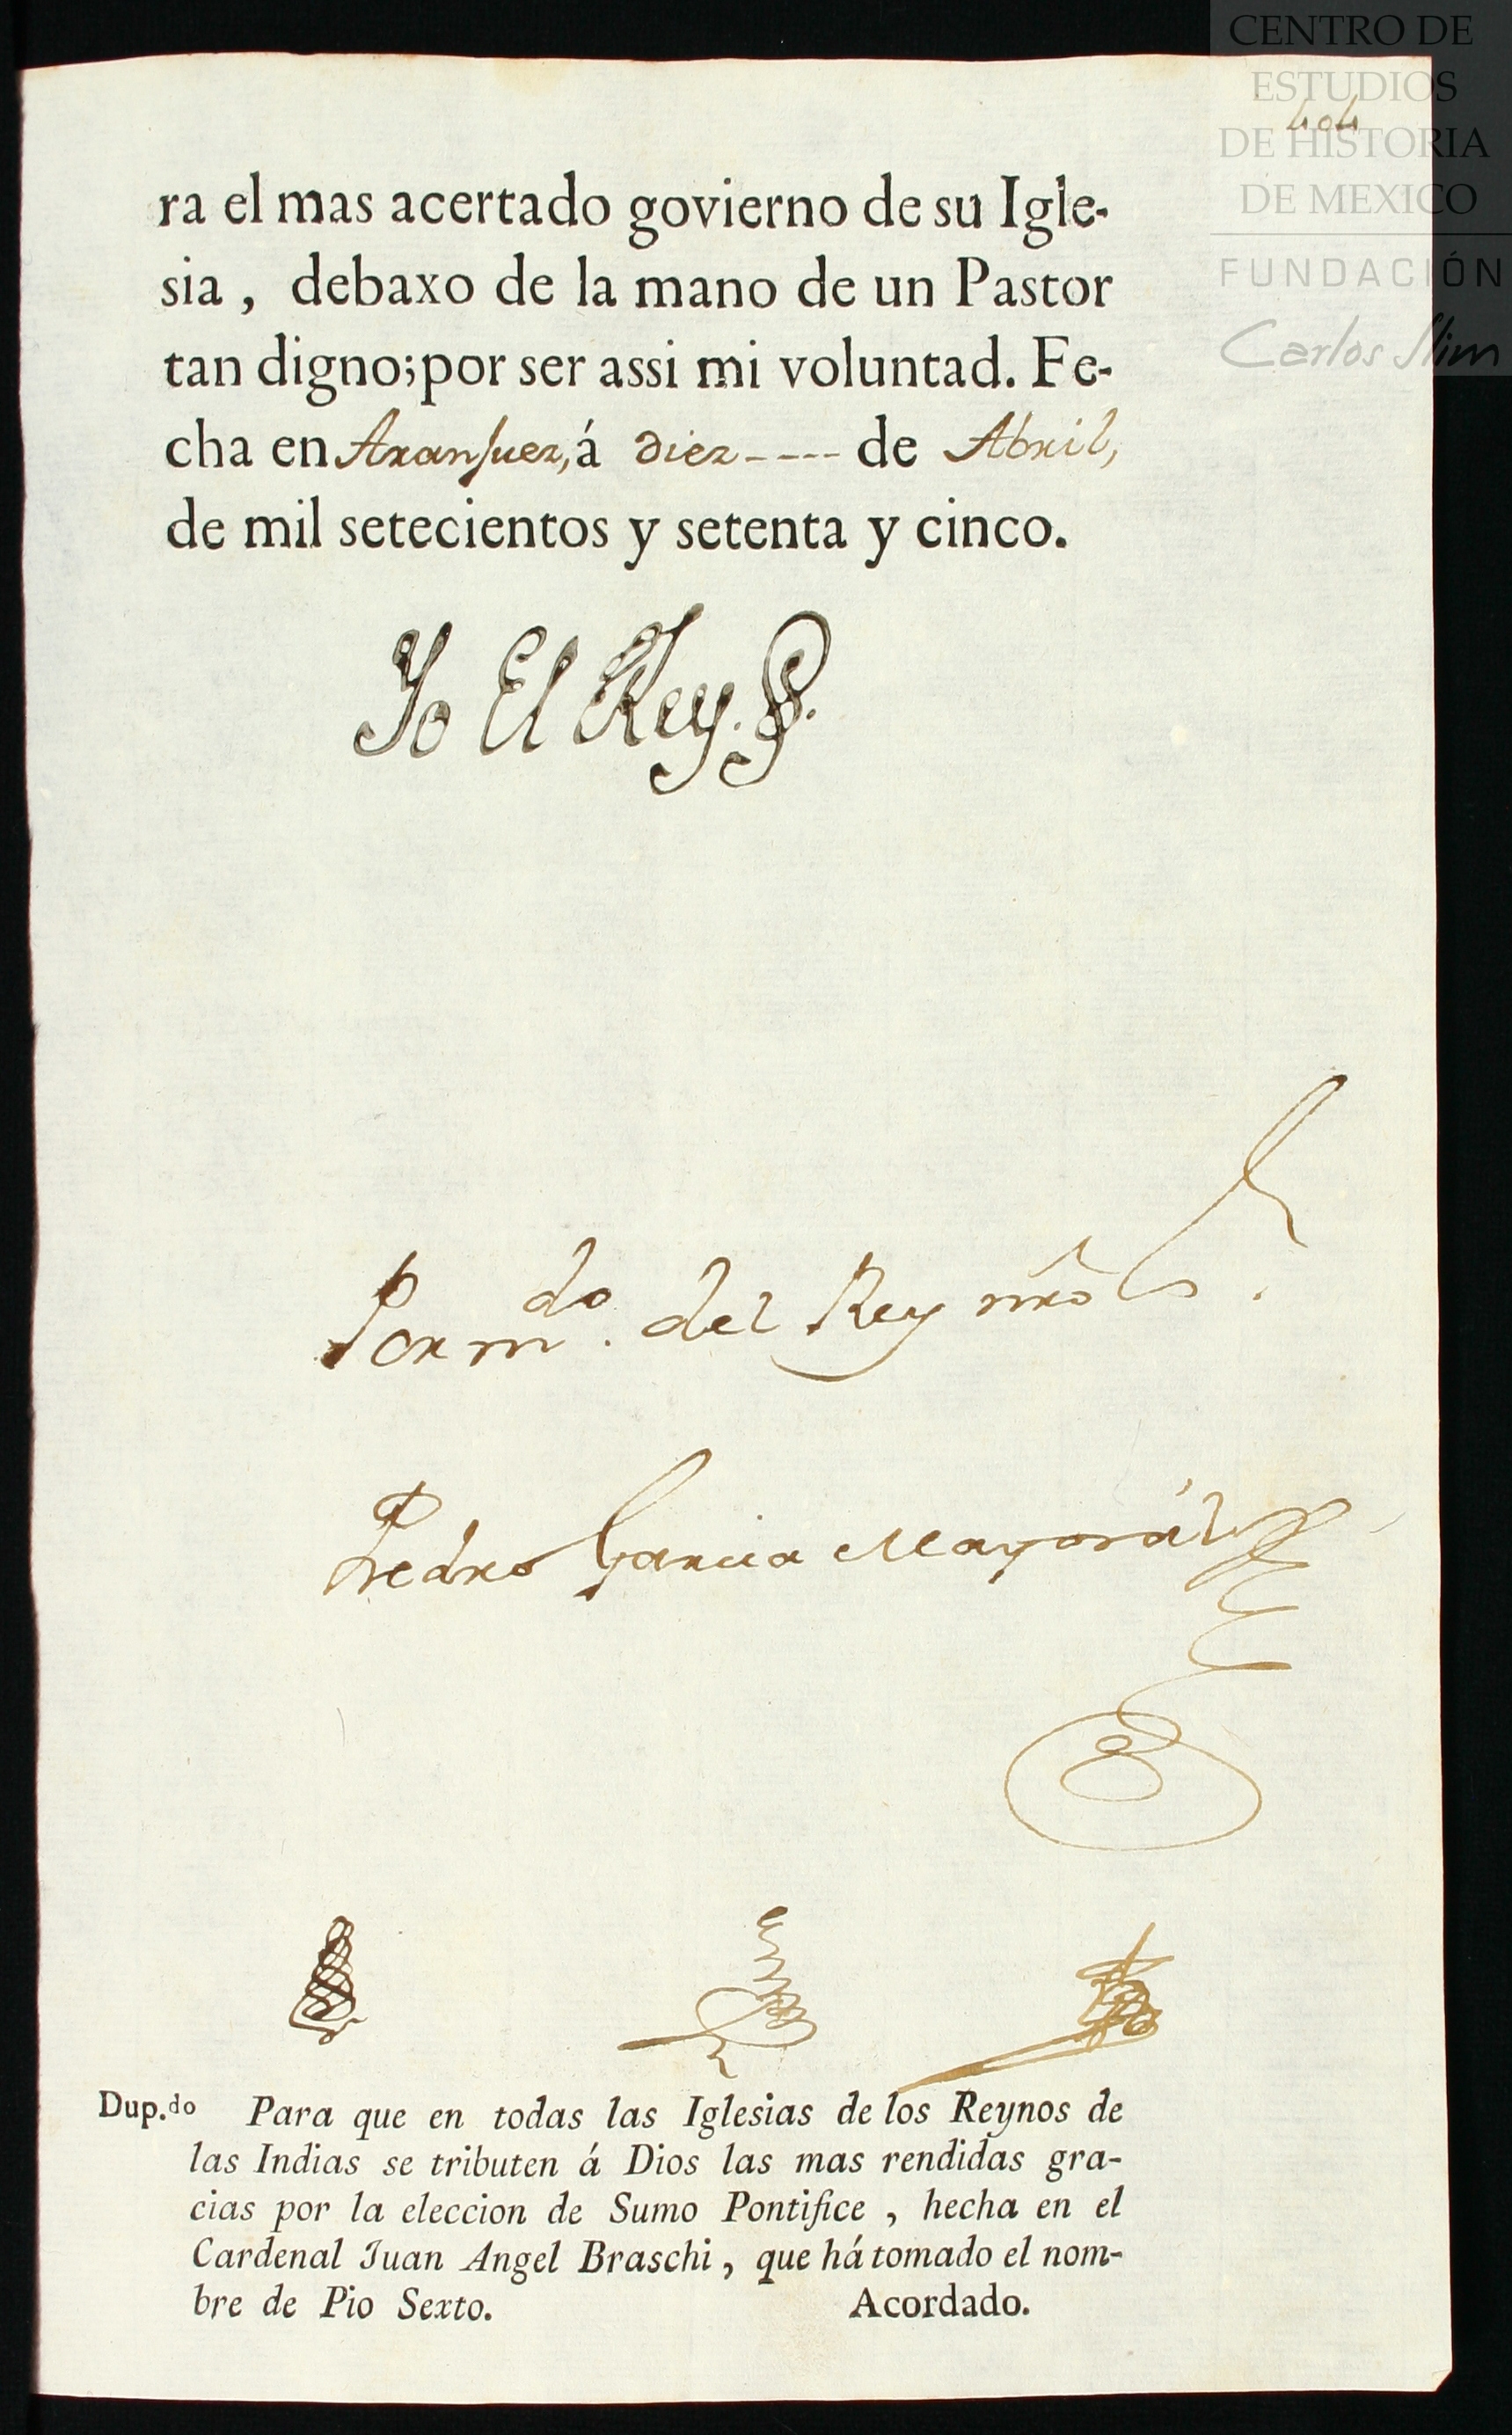 CENTRO DE
ESTUDIOS
DE HISTORIA
DE MEXICO
FUNDACIÓN
Carlos Slim
404
ra el mas acertado govierno de su Igle-
sia , debaxo de la mano de un Pastor
tan digno; por ser assi mi voluntad. Fe-
cha en Aranjuez, á diez ---- de Abril,
de mil setecientos y setenta y cinco.
Yo El Rey.
Por m.do del Rey nrõ S.
Pedro Garcia Mayorál
Dup.do Para que en todas las Iglesias de los Reynos de
las Indias se tributen á Dios las mas rendidas gra-
cias por la eleccion de Sumo Pontifice , hecha en el
Cardenal Juan Angel Braschi , que há tomado el nom-
bre de Pio Sexto. Acordado.